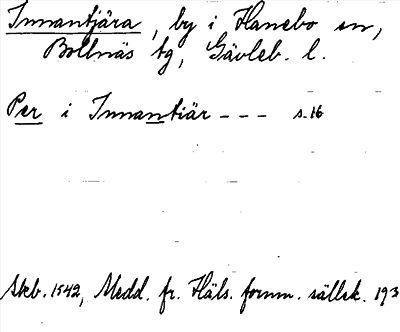 Innantjära, by i Hanebo sn,
Bollnäs tg, Gävleb. l.
Per i Innantiär --- s. 16
Skb. 1542, Medd. fr. Häls. fornm. sällsk. 193